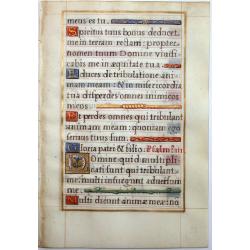 meus es tu.
Spiritus tuus bonus deducet
me in terram rectam: propter
nomen tuum domine vivifi
cabis me in æquitate tua.
Educes de tribulatione ani
mam meam: & in misericordia
tua disperdes omnes inimicos
meos.
Et perdes omnes qui tribulant
animam meam: quoniam ego
servus tuus sum.
Gloria patri & filio. Psalmus
Domine quid multipli
cati sunt qui tribulant
me: multi insurgunt adversum
me.
Multi dicunt animæ meæ: no